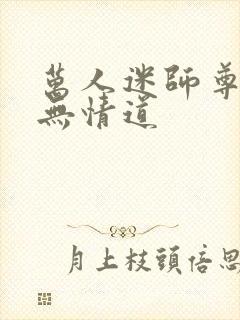 萬人迷師尊
無情道
月上枝頭倍思